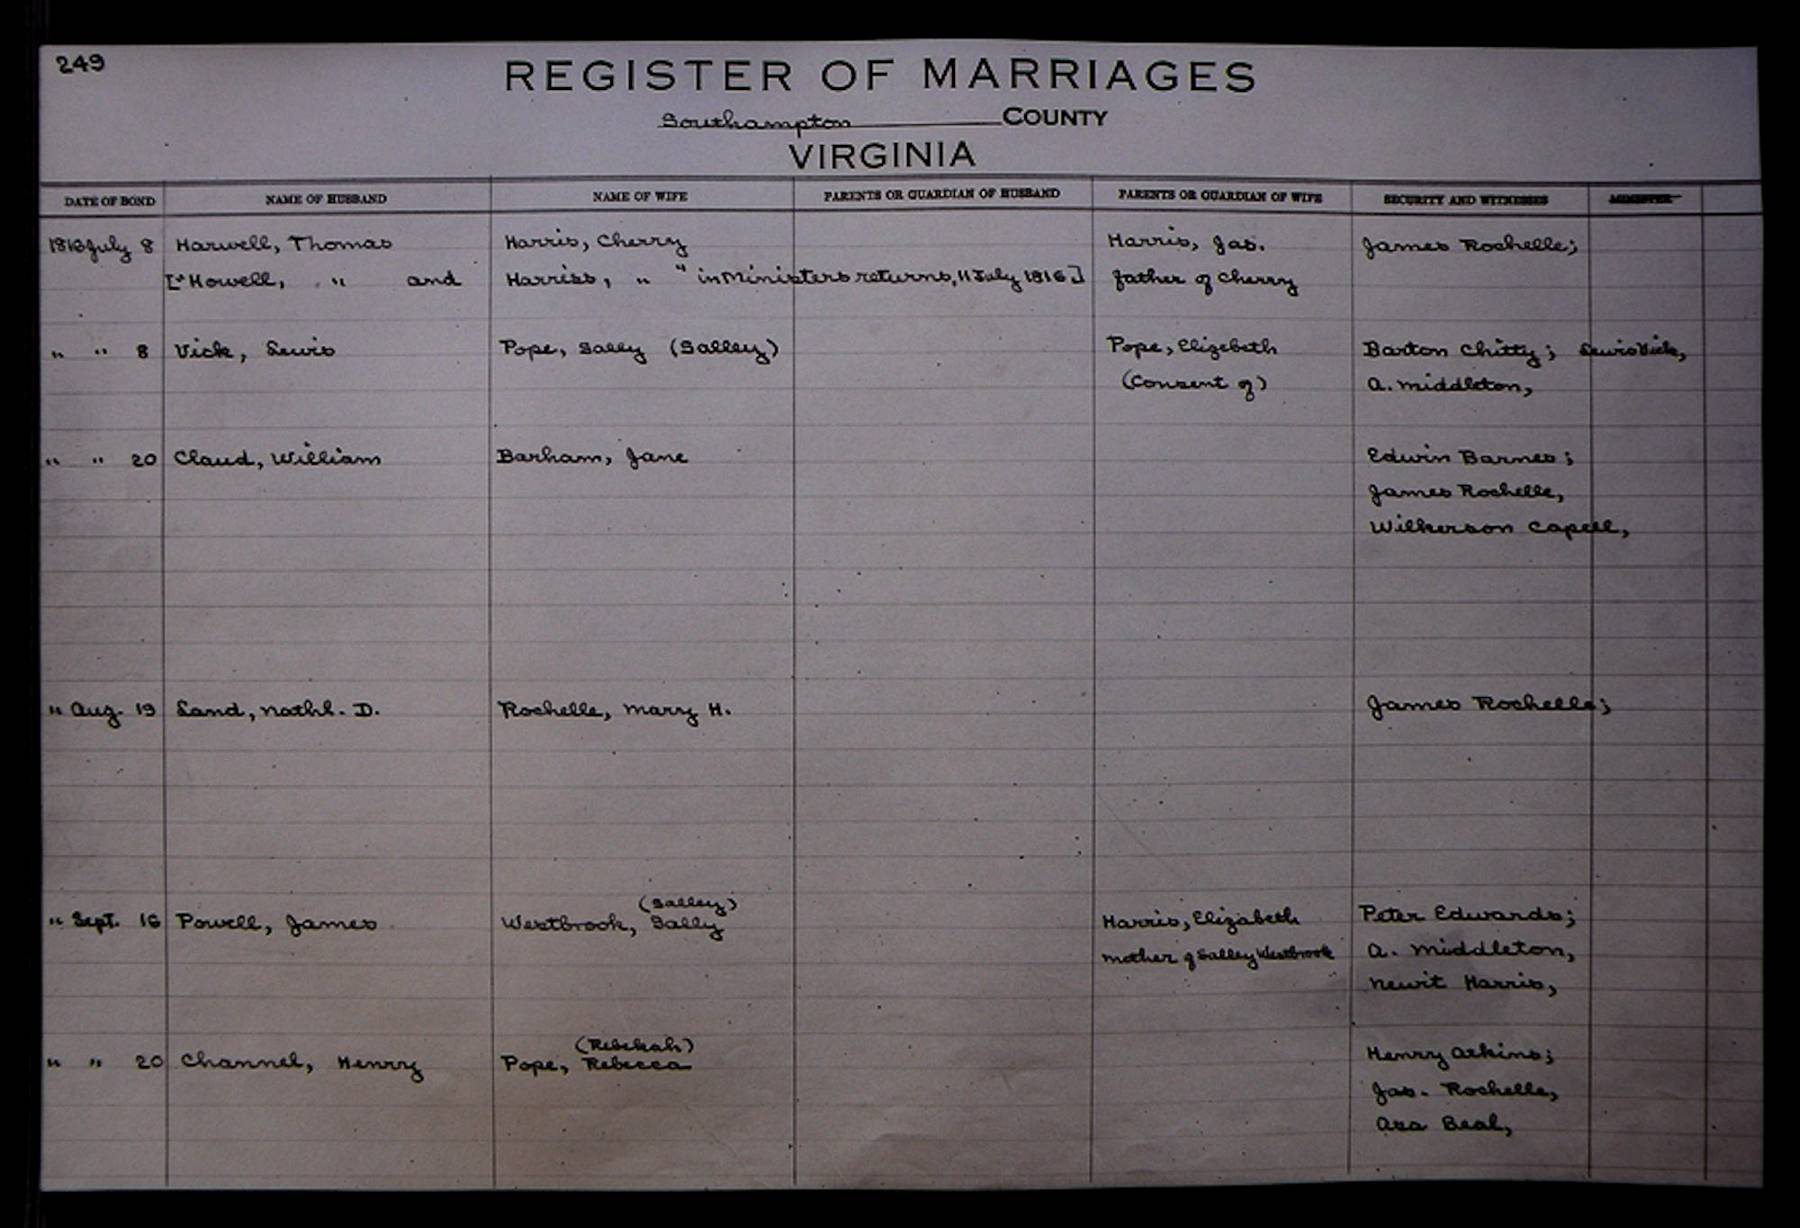 249
REGISTER OF MARRIAGES
Southampton COUNTY
VIRGINIA
DATE OF BOND NAME OF HUSBAND NAME OF WIFE PARENTS OR GUARDIAN OF HUSBAND PARENTS OR GUARDIAN OF WIFE SECURITY AND WITNESSES MINISTER
1816 July 8 Harwell, Thomas Harris, Cherry Harris, Jas. James Rochelle;
["Howell, " and Harriss, " " in Ministers returns, 11 July 1816] father of Cherry
" " 8 Vick, Lewis Pope, Sally (Salley) Pope, Elizebeth Barton Chitty; Lewis Vick,
(Consent of) A. Middleton,
" " 20 Claud, William Barham, Jane Edwin Barnes;
James Rochelle,
Wilkerson Capell,
" Aug. 19 Land, Nathl. D. Rochelle, Mary H. James Rochelle;
(Salley)
" Sept. 16 Powell, James Westbrook, Sally Harris, Elizabeth Peter Edwards;
mother of Salley Westbrook A. Middleton,
Newit Harris,
(Rebekah)
" " 20 Channel, Henry Pope, Rebecca Henry Atkins;
Jas. Rochelle,
Asa Beal,